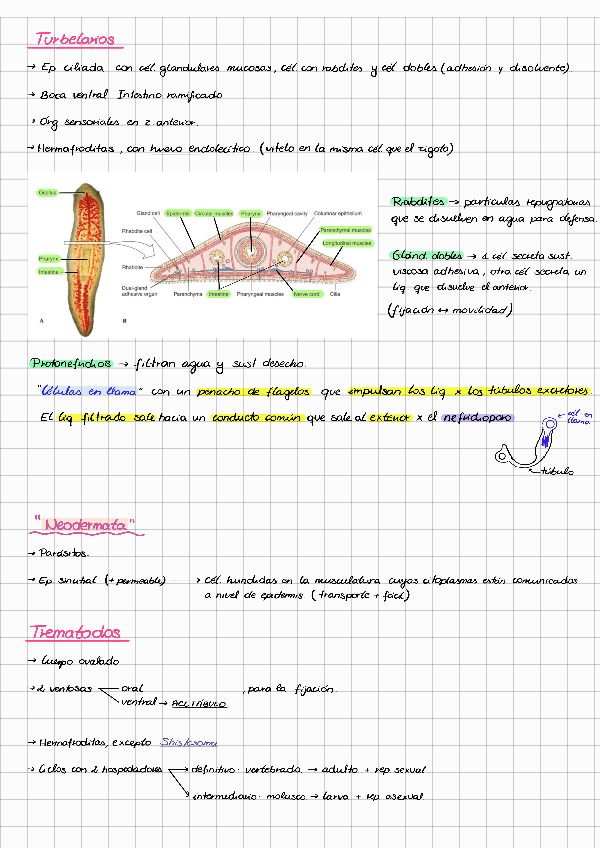 Turbelarios
→ Ep ciliada con cél. glandulares mucosas, cél. con rabdites y cél dobles (adhesión y disolvente).
→ Boca ventral Intestino ramificado
→ Órg sensoriales en z. anterior.
→ Hermafroditas, con huevo endolecítico (vitelo en la misma cél que el zigoto)
Ocellus
Pharynx
Intestine
A
Gland cell
Epidermis
Circular muscles
Pharynx
Pharyngeal cavity
Columnar epithelium
Rhabdite cell
Parenchymal muscles
Longitudinal muscles
Rhabdite
Dual-gland
adhesive organ
Parenchyma
Intestine
Pharyngeal muscles
Nerve cord
Cilia
B
Rabdites → partículas repugnatorias
que se disuelven en agua para defensa.
Gland. dobles → 1 cél secreta sust.
viscosa adhesiva, otra cél secreta un
líq que disuelve el anterior.
(fijación ↔ movilidad)
Protonefridios → filtran agua y sust desecho.
"Células en llama" con un penacho de flagelos que impulsan los líq x los túbulos excretores.
El líq filtrado sale hacia un conducto común que sale al exterior x el nefridioporo
cél en
llama.
túbulo
"Neodermata"
→ Parásitos.
→ Ep. sincitial (+ permeable) → cél. hundidas en la musculatura cuyos citoplasmas están comunicados
a nivel de epidermis (transporte + fácil)
Trematodos
→ Cuerpo ovalado
→ 2 ventosas oral , para la fijación.
ventral → ACETÁBULO
→ Hermafroditas, excepto Shistosoma
→ Ciclos con 2 hospedadores → definitivo: vertebrado. → adulto + rep sexual
intermediario: molusco → larva + rep asexual.